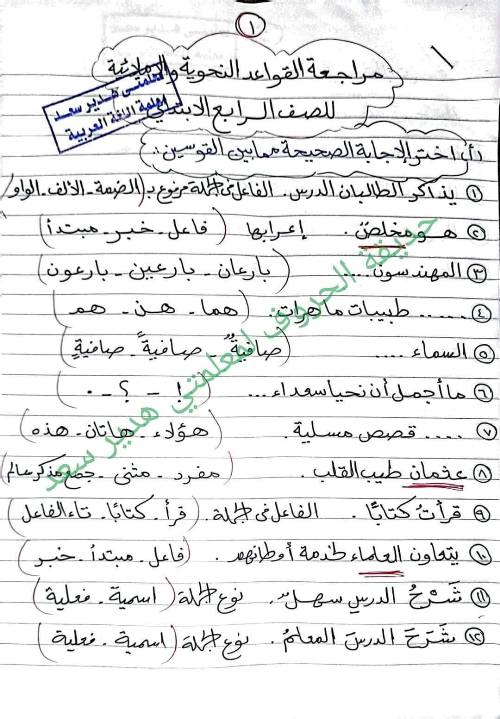 ١
١
مراجعة القواعد النحوية والإملائية
للصف الرابع الابتدائي
معلمتى هدير سعد
معلمة اللغة العربية
(أ) اختر الإجابة الصحيحة مما بين القوسين:
١ يذاكر الطالبان الدرس. الفاعل فى الجملة مرفوع بـ (الضمة - الألف - الواو)
٢ هو مخلصٌ. إعرابها (فاعل - خبر - مبتدأ)
٣ المهندسون .... (بارعان - بارعين - بارعون)
٤ ...... طبيبات ماهرات. (هما - هن - هم)
٥ السماء .... (صافيةٌ - صافيةً - صافيةٍ)
٦ ما أجمل أن نحيا سعداء ... (! - ؟ - .)
٧ ..... قصص مسلية. (هؤلاء - هاتان - هذه)
٨ عثمان طيب القلب. (مفرد - مثنى - جمع مذكر سالم)
٩ قرأتُ كتابًا. الفاعل فى الجملة. (قرأ - كتابًا - تاء الفاعل)
١٠ يتعاون العلماء لخدمة أوطانهم. (فاعل - مبتدأ - خبر)
١١ شَرْحُ الدرسِ سهلٌ. نوع الجملة (اسمية - فعلية)
١٢ شَرَحَ الدرسَ المعلمُ. نوع الجملة (اسمية - فعلية)
حديقة الحروف لمعلمتي هدير سعد